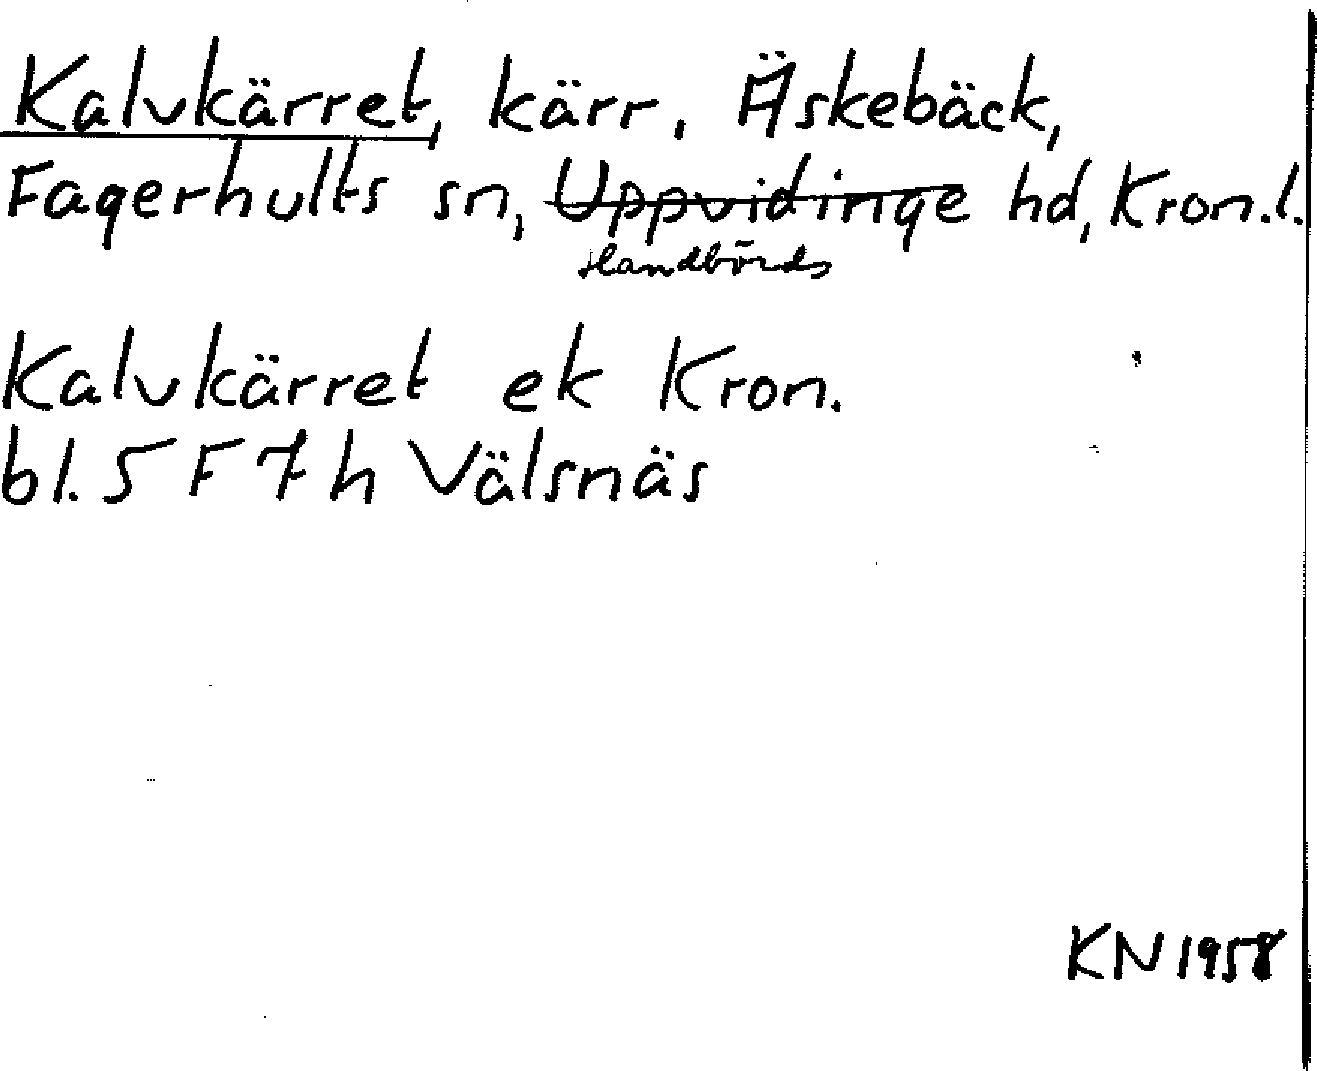 Kalvkärret, kärr, Äskebäck,
Fagerhults sn, Uppvidinge hd, Kron.l.
Handbörds
Kalvkärret ek Kron.
bl. 5 F 7 h Välsnäs
KN 1958